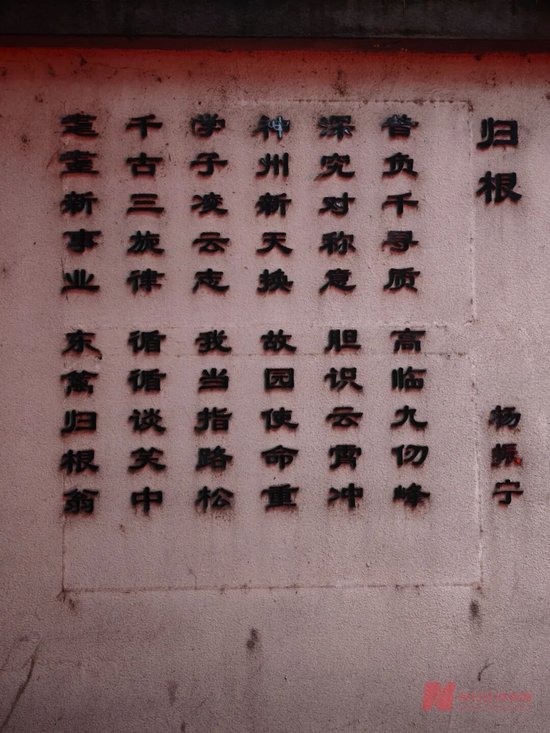 归根
杨振宁
昔负千寻质
高临九仞峰
深究对称意
胆识云霄冲
神州新天换
故园使命重
学子凌云志
我当指路松
千古三旋律
循循谈笑中
耄耋新事业
东篱归根翁